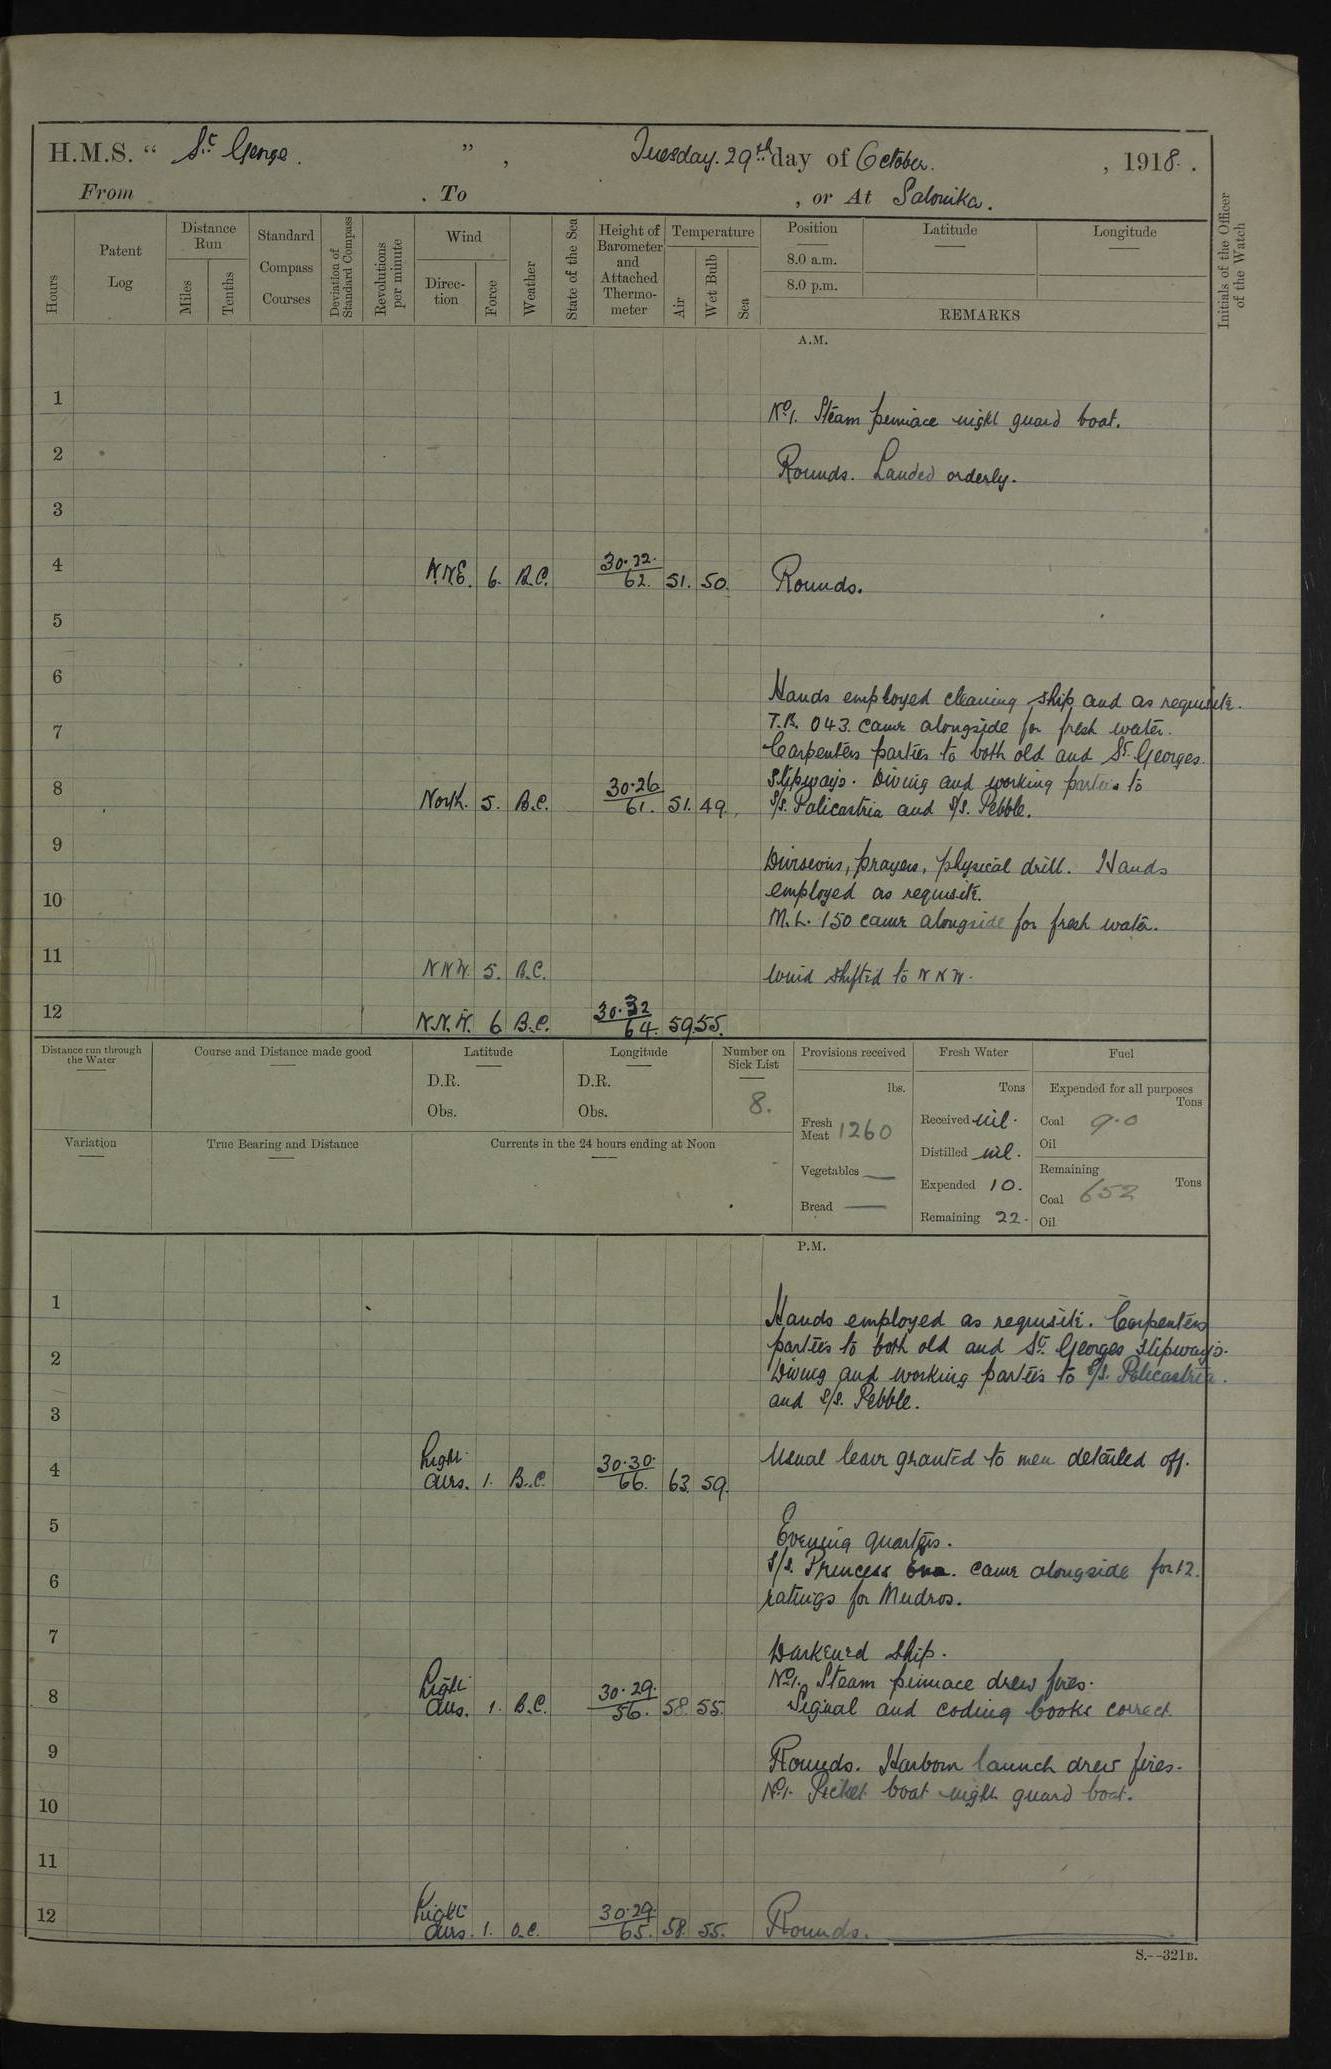 H.M.S. " St. George. " , Tuesday. 29th day of October. , 1918.
From . To , or At Salonika.
Hours
Patent Log
Distance Run
Miles
Tenths
Standard Compass Courses
Deviation of Standard Compass
Revolutions per minute
Wind
Direction
Force
Weather
State of the Sea
Height of Barometer and Attached Thermometer
Temperature
Air
Wet Bulb
Sea
Position
8.0 a.m.
8.0 p.m.
Latitude
Longitude
REMARKS
Initials of the Officer of the Watch
A.M.
1
No 1. Steam pinnace night guard boat.
2
Rounds. Landed orderly.
3
4 N.N.E. 6. B.C. 30.22. 62. 51. 50. Rounds.
5
6
Hands employed cleaning ship and as requisite.
7 T.B. 043 came alongside for fresh water.
Carpenters parties to both old and St. Georges
8 Slipways. Diving and working parties to
North. 5. B.C. 30.26 61. 51. 49. S/S. Policastria and S/S. Pebble.
9
Divisions, prayers, physical drill. Hands
10 employed as requisite.
M.L. 150 came alongside for fresh water.
11 N N W. 5. B.C. Wind shifted to N N W.
12 N.N.W. 6 B.C. 30.32 64. 59 55.
Distance run through the Water
Course and Distance made good
Latitude
D.R.
Obs.
Longitude
D.R.
Obs.
Number on Sick List
8.
Provisions received
lbs.
Fresh Meat 1260
Vegetables —
Bread —
Fresh Water
Tons
Received nil.
Distilled nil.
Expended 10.
Remaining 22.
Fuel
Expended for all purposes
Tons
Coal 9.0
Oil
Remaining
Tons
Coal 652
Oil
Variation
True Bearing and Distance
Currents in the 24 hours ending at Noon
P.M.
1
Hands employed as requisite. Carpenters
2 parties to both old and St. Georges slipways.
Diving and working parties to S/S. Policastria.
3 and S/S. Pebble.
4 Light airs. 1. B.C. 30.30. 66. 63. 59. Usual leave granted to men detailed off.
5
Evening quarters.
6 S/S. Princess Ena. came alongside for 12.
ratings for Mudros.
7
Darkened ship.
No 1. Steam pinnace drew fires.
8 Light airs. 1. B.C. 30.29. 56. 58. 55. Signal and coding books correct
9
Rounds. Harbour launch drew fires.
10 No 1. Picket boat night guard boat.
11
12 Light airs. 1. O.C. 30.29. 65. 58. 55. Rounds.
S.--321B.